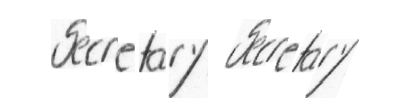 Secretary Secretary